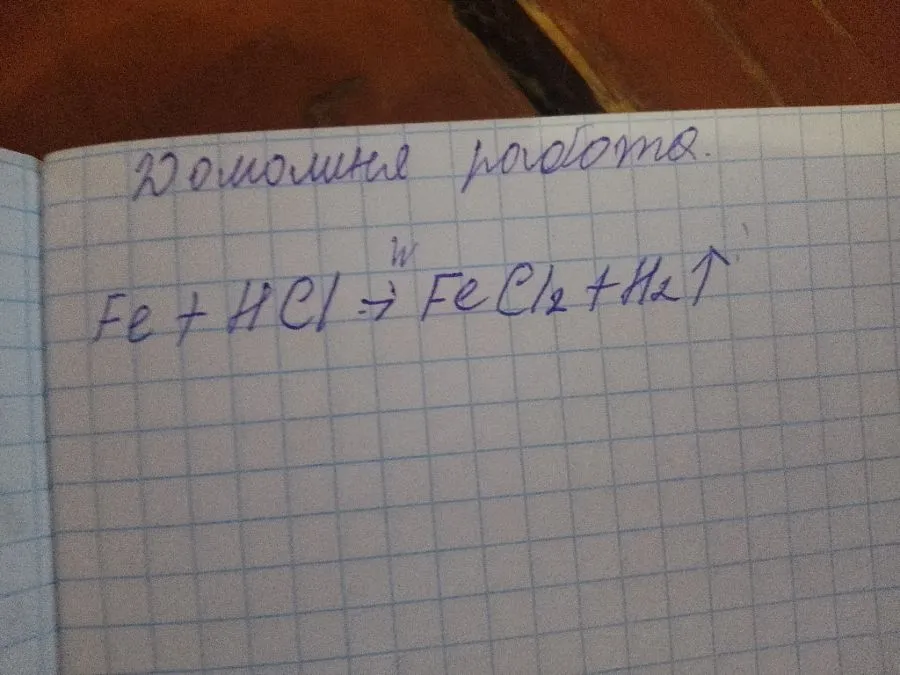 Домашня работа.
Fe + HCl → FeCl₂ + H₂↑